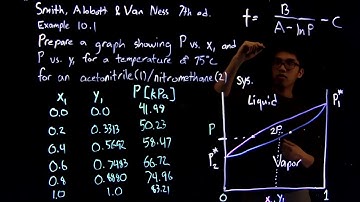 Smith, Abbott & Van Ness 7th ed.
Example 10.1
Prepare a graph showing P vs. x₁ and
P vs. y₁ for a temperature of 75°C
for an acetonitrile(1)/nitromethane(2) sys.
x₁ y₁ P [kPa]
0.0 0.0 41.98
0.2 0.3313 50.23
0.4 0.5692 58.47
0.6 0.7483 66.72
0.8 0.8880 74.96
1.0 1.0 83.21
t = B / A - ln P - C
Liquid
P₁*
P
2P
P₂*
Vapor
0 x, y₁ 1